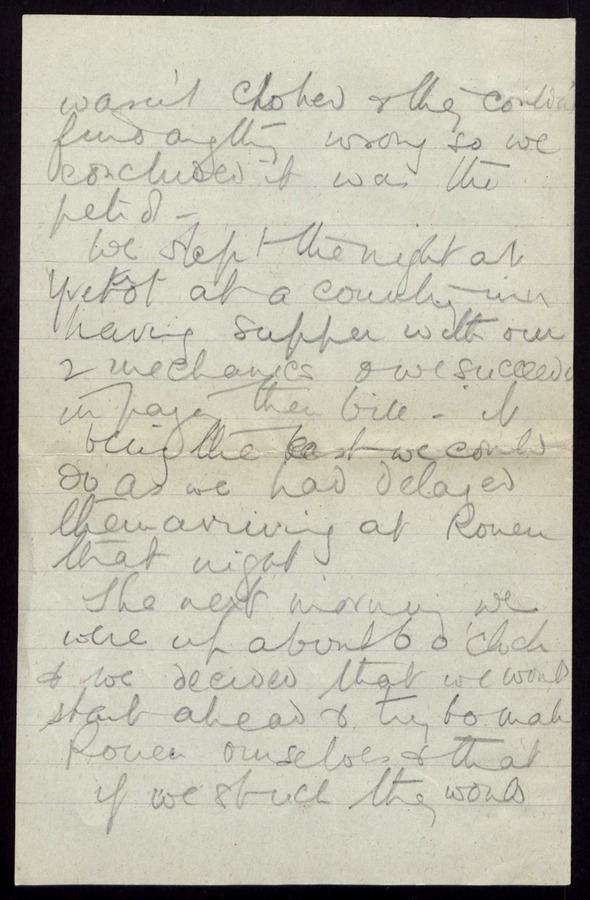 wasn't choked & they couldn't
find anything wrong so we
concluded it was the
petrol -
We slept the night at
Yvetot at a country inn
having supper with our
2 mechanics & we succeeded
in paying their bill - it
being the least we could
do as we had delayed
them arriving at Rouen
that night
The next morning we
were up about 6 o'clock
& we decided that we would
start ahead & try to make
Rouen ourselves & that
if we stuck they would